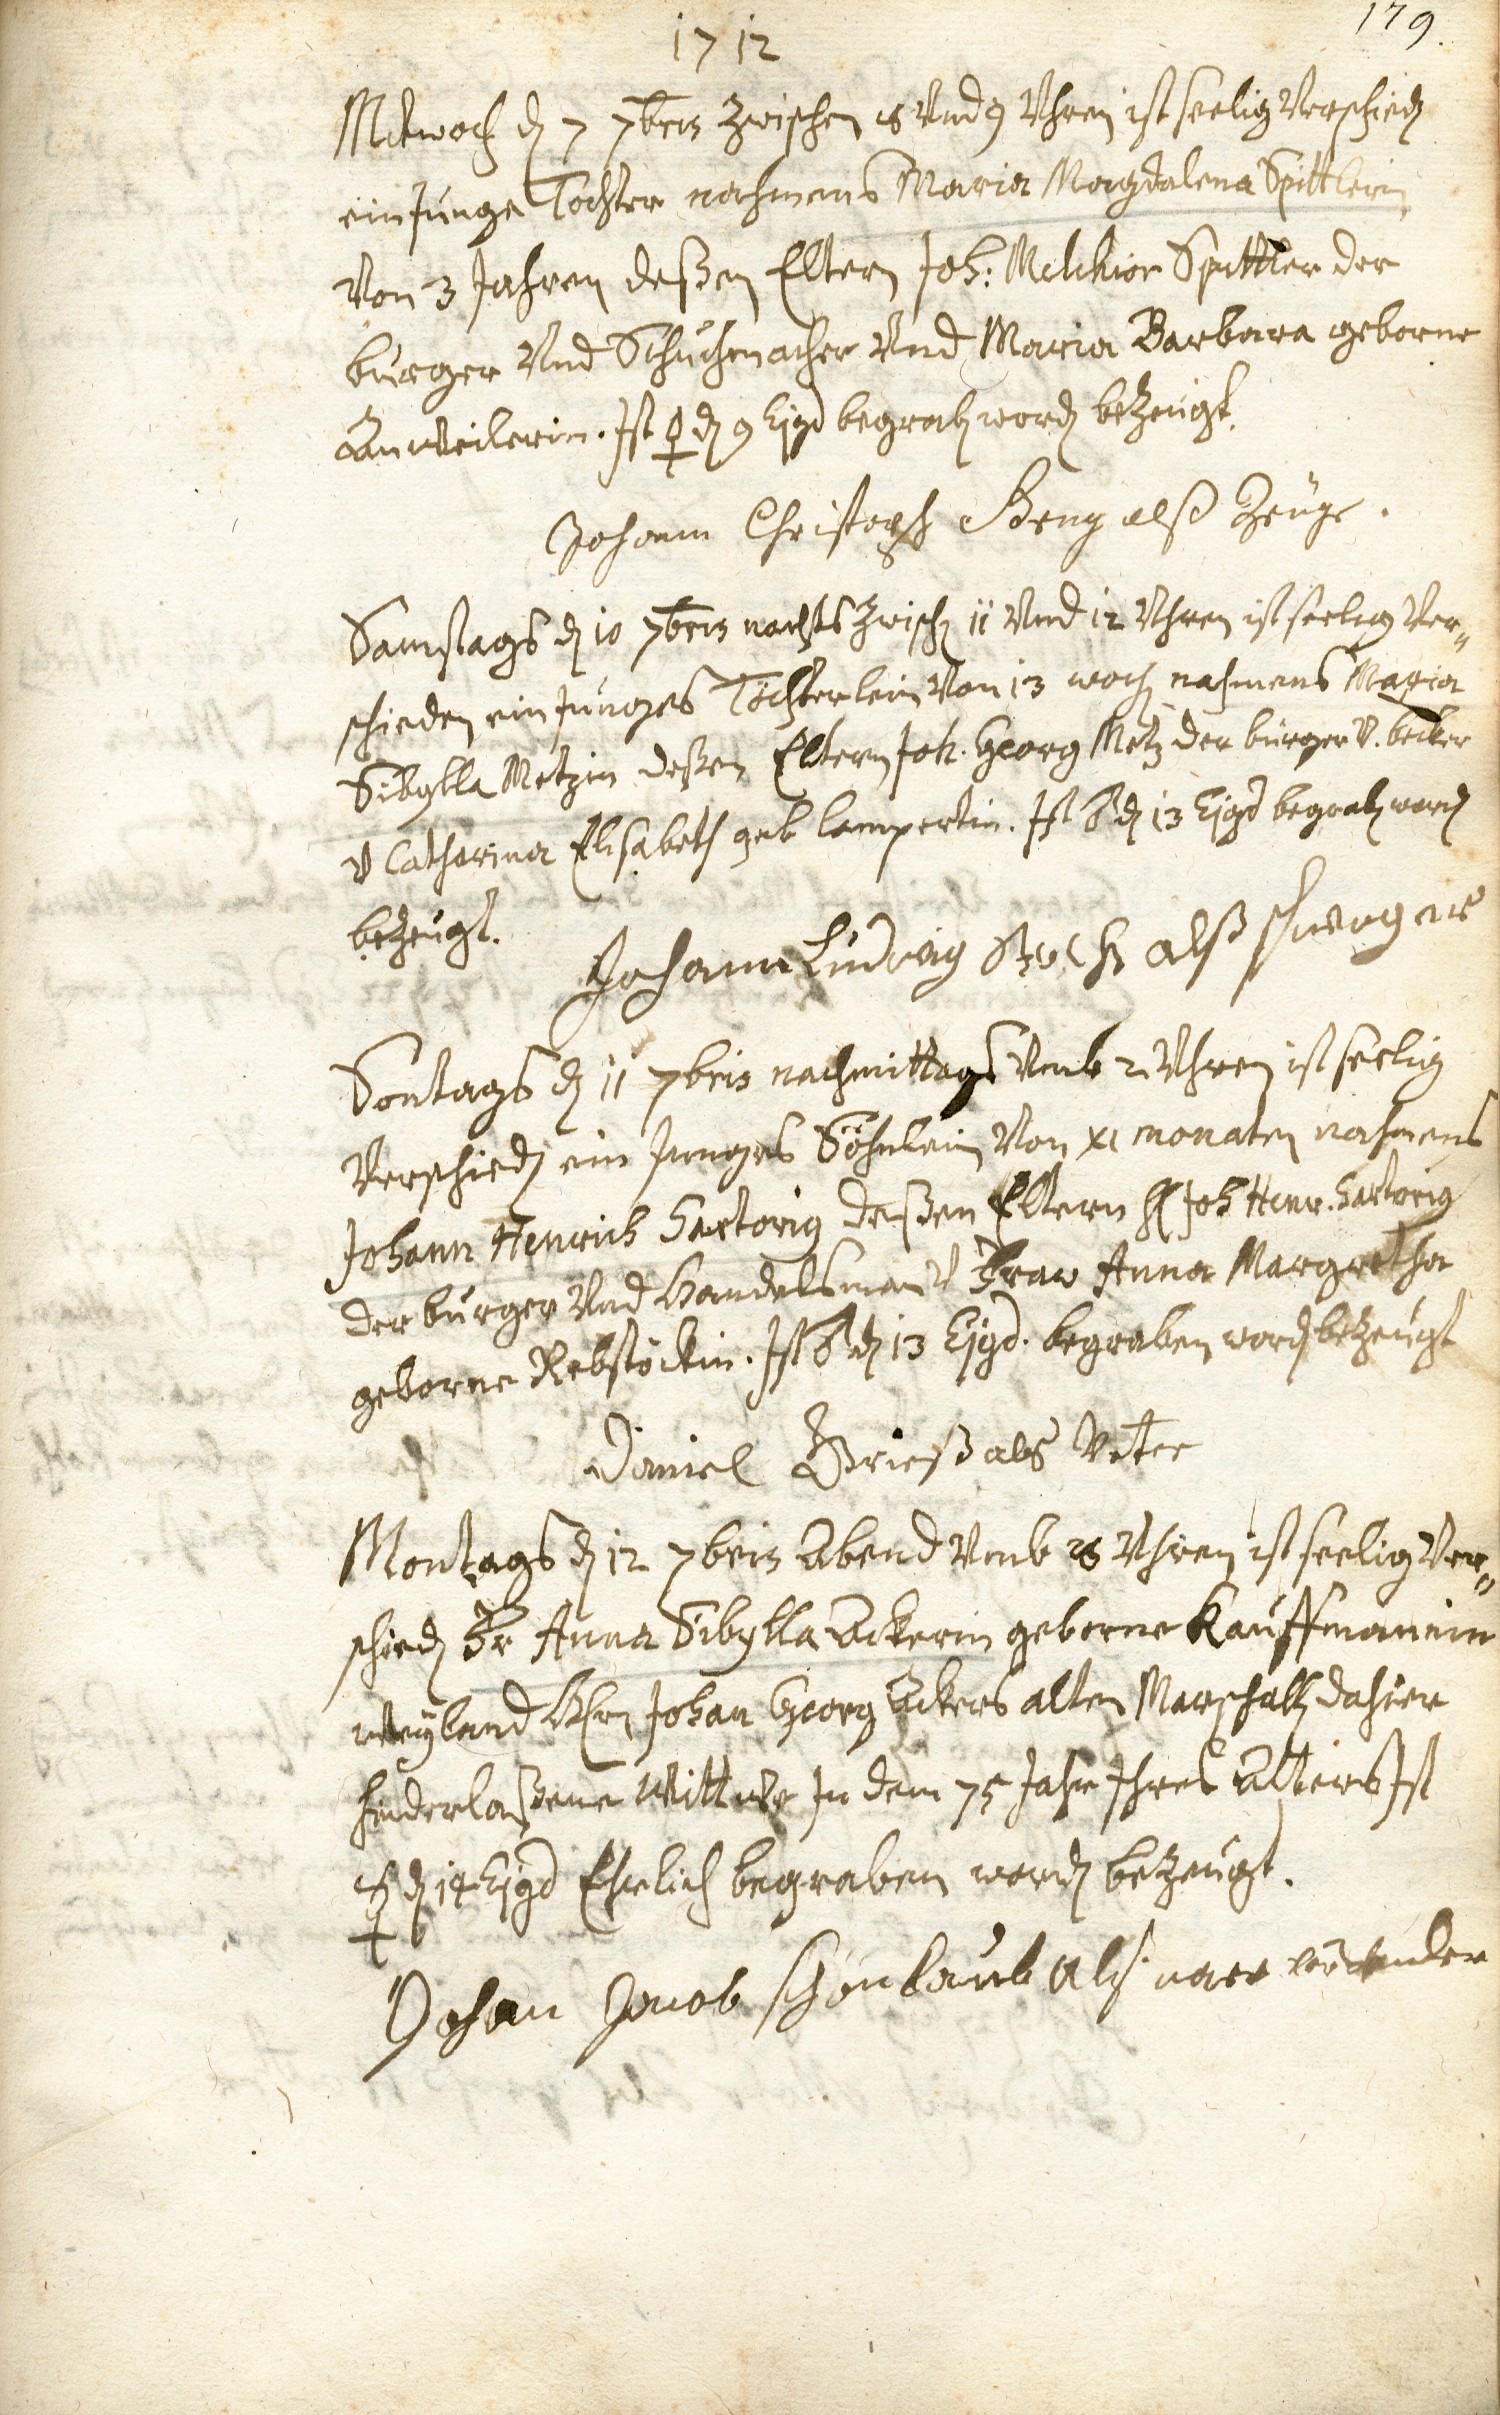 179.
1712
Mitwoch dē 7 7bris zwischen 8 Und 9 Uhren ist seelig Verschiedē
ein Junge Tochter nahmens Maria Magdalena Spittlerin
Von 3 Jahren deßen Eltern Joh: Melchior Spittler der
burger Und Schuchmacher Und Maria Barbara geborne
Anweilerin. Ist ♀ dē 9 Ejgd begrabē wordē bezeugt.
Johann Christoph alß Zeuge.
Samstags dē 10 7bris nachts zwischē 11 Und 12 Uhren ist seelig Ver„
schieden ein Junges Töchterlein Von 13 wochē nahmens Maria
Sibylla Metzin deßen Eltern Joh. Georg Metz der burger V. becker
V Catharina Elisabeth geb lampertin. Ist ♂ dē 13 Ejgd begrabē wordē
bezeugt.
Johann Ludwig alß schwager
Sontags dē 11 7bris nachmittags Umb 2 Uhren ist seelig
Verschiedē ein Junges Söhnlein Von XI monaten nahmens
Johann Henrich Sartorig deßen Eltern H Joh Henr. Sartorig
der burger Und Handelsman V Fraw Anna Margretha
geborne Rebstöckin. Ist ♂ dē 13 Ejgd. begraben wordē bezeugt
Daniel Grieß als Vetter
Montags dē 12 7bris Abend Umb 8 Uhren ist seelig Ver„
schiedē Fr Anna Sibylla Ackerin geborne Kauffmannin
weyland Hrn Johan Georg Ackers alten Marschallē dahier
hinderlaßene Wittwe In dem 75 Jahr Ihres Alters Ist
☿ dē 14 Ejgd Ehrlich begraben wordē bezeugt.
Johan Jacob schönlaub alß